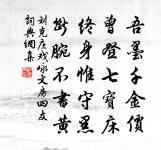 吾墨千金價
曾登七寶床
終身惟守黑
斷腕不書黄
劉克庄戏咏文房四友
詞典網集